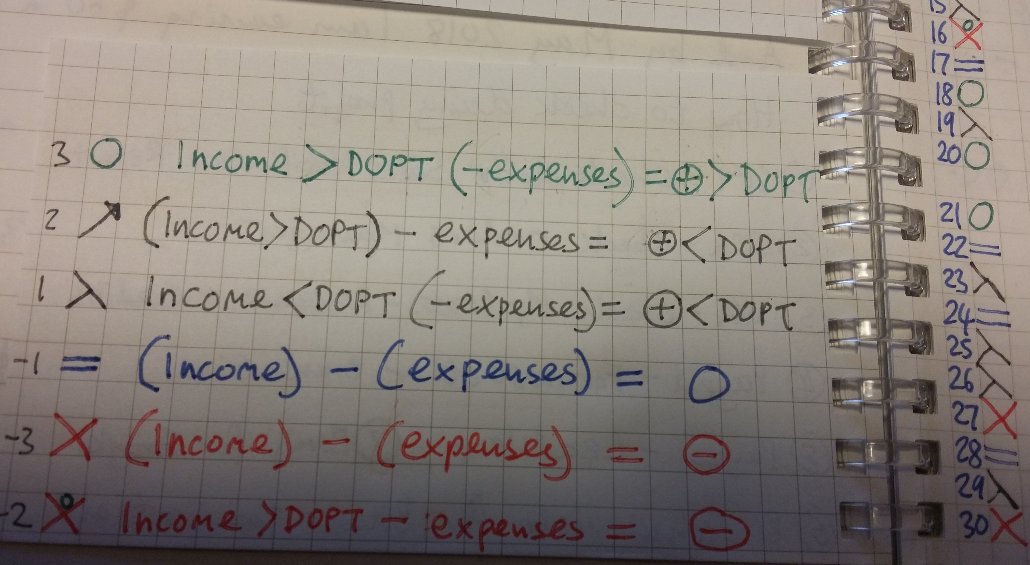 3 O Income > DOPT (-expenses) = ⊕ > DOPT
2 ↗ (Income > DOPT) - expenses = ⊕ < DOPT
1 λ Income < DOPT (-expenses) = ⊕ < DOPT
-1 = (Income) - (expenses) = O
-3 X (Income) - (expenses) = ⊖
-2 X Income > DOPT - expenses = ⊖
15 λ
16 X
17 =
18 O
19 λ
20 O
21 O
22 =
23 λ
24 =
25 λ
26 λ
27 X
28 =
29 λ
30 X